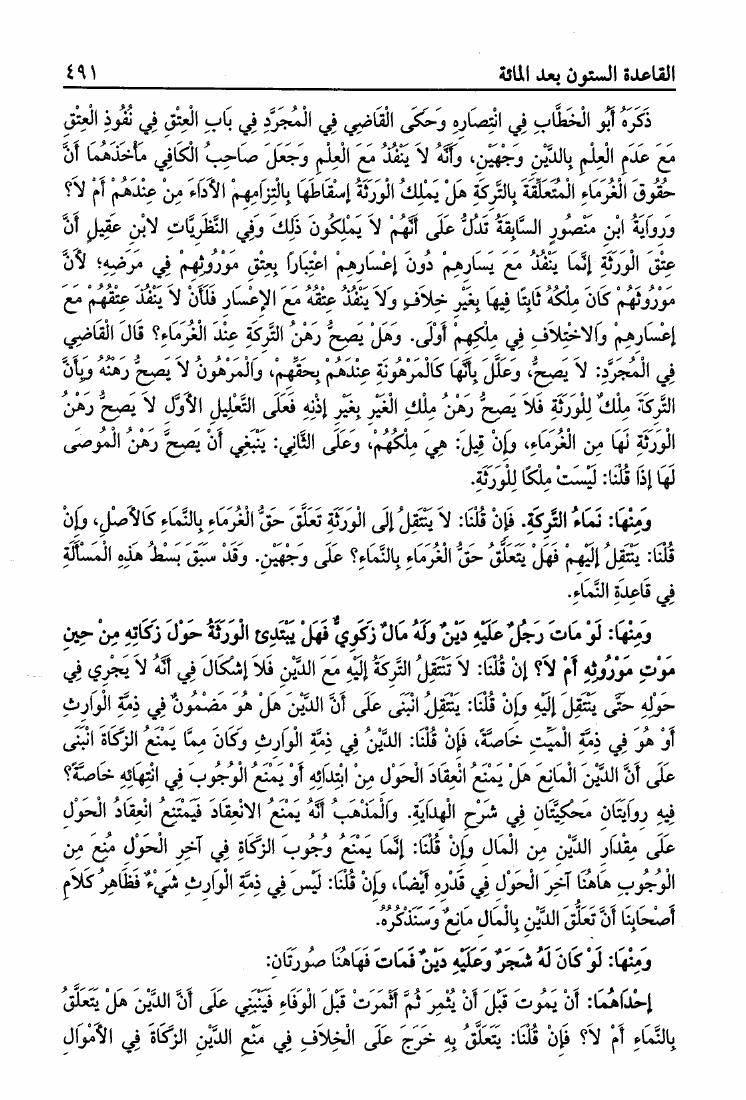 القاعدة الستون بعد المائة ٤٩١
ذَكَرَهُ أَبُو الْخَطَّابِ فِي انْتِصَارِهِ وَحَكَى الْقَاضِي فِي الْمُجَرَّدِ فِي بَابِ الْعِتْقِ فِي نُفُوذِ الْعِتْقِ
مَعَ عَدَمِ الْعِلْمِ بِالدَّيْنِ وَجْهَيْنِ، وَأَنَّهُ لَا يَنْفُذُ مَعَ الْعِلْمِ وَجَعَلَ صَاحِبُ الْكَافِي مَأْخَذَهُمَا أَنَّ
حُقُوقَ الْغُرَمَاءِ الْمُتَعَلِّقَةَ بِالتَّرِكَةِ هَلْ يَمْلِكُ الْوَرَثَةُ إسْقَاطَهَا بِالْتِزَامِهِمْ الْأَدَاءَ مِنْ عِنْدَهُمْ أَمْ لَا؟
وَرِوَايَةُ ابْنِ مَنْصُورٍ السَّابِقَةُ تَدُلُّ عَلَى أَنَّهُمْ لَا يَمْلِكُونَ ذَلِكَ وَفِي النَّظَرِيَّاتِ لِابْنِ عَقِيلٍ أَنَّ
عِتْقَ الْوَرَثَةِ إنَّمَا يَنْفُذُ مَعَ يَسَارِهِمْ دُونَ إعْسَارِهِمْ اعْتِبَارًا بِعِتْقِ مَوْرُوثِهِمْ فِي مَرَضِهِ؛ لِأَنَّ
مَوْرُوثَهُمْ كَانَ مِلْكُهُ ثَابِتًا فِيهَا بِغَيْرِ خِلَافٍ وَلَا يَنْفُذُ عِتْقُهُ مَعَ الْإِعْسَارِ فَلَأَنْ لَا يَنْفُذَ عِتْقُهُمْ مَعَ
إعْسَارِهِمْ وَالِاخْتِلَافِ فِي مِلْكِهِمْ أَوْلَى. وَهَلْ يَصِحُّ رَهْنُ التَّرِكَةِ عِنْدَ الْغُرَمَاءِ؟ قَالَ الْقَاضِي
فِي الْمُجَرَّدِ: لَا يَصِحُّ، وَعَلَّلَ بِأَنَّهَا كَالْمَرْهُونَةِ عِنْدَهُمْ بِحَقِّهِمْ، وَالْمَرْهُونُ لَا يَصِحُّ رَهْنُهُ وَبِأَنَّ
التَّرِكَةَ مِلْكٌ لِلْوَرَثَةِ فَلَا يَصِحُّ رَهْنُ مِلْكِ الْغَيْرِ بِغَيْرِ إذْنِهِ فَعَلَى التَّعْلِيلِ الْأَوَّلِ لَا يَصِحُّ رَهْنُ
الْوَرَثَةِ لَهَا مِنِ الْغُرَمَاءِ، وَإِنْ قِيلَ: هِيَ مِلْكُهُمْ، وَعَلَى الثَّانِي: يَنْبَغِي أَنْ يَصِحَّ رَهْنُ الْمُوصَى
لَهَا إذَا قُلْنَا: لَيْسَتْ مِلْكًا لِلْوَرَثَةِ.
وَمِنْهَا: نَمَاءُ التَّرِكَةِ. فَإِنْ قُلْنَا: لَا يَنْتَقِلُ إلَى الْوَرَثَةِ تَعَلَّقَ حَقُّ الْغُرَمَاءِ بِالنَّمَاءِ كَالْأَصْلِ، وَإِنْ
قُلْنَا: يَنْتَقِلُ إلَيْهِمْ فَهَلْ يَتَعَلَّقُ حَقُّ الْغُرَمَاءِ بِالنَّمَاءِ؟ عَلَى وَجْهَيْنِ. وَقَدْ سَبَقَ بَسْطُ هَذِهِ الْمَسْأَلَةِ
فِي قَاعِدَةِ النَّمَاءِ.
وَمِنْهَا: لَوْ مَاتَ رَجُلٌ عَلَيْهِ دَيْنٌ وَلَهُ مَالٌ زَكَوِيٌّ فَهَلْ يَبْتَدِئُ الْوَرَثَةُ حَوْلَ زَكَاتِهِ مِنْ حِينِ
مَوْتِ مَوْرُوثِهِ أَمْ لَا؟ إنْ قُلْنَا: لَا تَنْتَقِلُ التَّرِكَةُ إلَيْهِ مَعَ الدَّيْنِ فَلَا إشْكَالَ فِي أَنَّهُ لَا يَجْرِي فِي
حَوْلِهِ حَتَّى يَنْتَقِلَ إلَيْهِ وَإِنْ قُلْنَا: يَنْتَقِلُ انْبَنَى عَلَى أَنَّ الدَّيْنَ هَلْ هُوَ مَضْمُونٌ فِي ذِمَّةِ الْوَارِثِ
أَوْ هُوَ فِي ذِمَّةِ الْمَيِّتِ خَاصَّةً، فَإِنْ قُلْنَا: الدَّيْنُ فِي ذِمَّةِ الْوَارِثِ وَكَانَ مِمَّا يَمْنَعُ الزَّكَاةَ انْبَنَى
عَلَى أَنَّ الدَّيْنَ الْمَانِعَ هَلْ يَمْنَعُ انْعِقَادَ الْحَوْلِ مِنْ ابْتِدَائِهِ أَوْ يَمْنَعُ الْوُجُوبَ فِي انْتِهَائِهِ خَاصَّةً؟
فِيهِ رِوَايَتَانِ مَحْكِيَّتَانِ فِي شَرْحِ الْهِدَايَةِ. وَالْمَذْهَبُ أَنَّهُ يَمْنَعُ الِانْعِقَادَ فَيَمْتَنِعُ انْعِقَادُ الْحَوْلِ
عَلَى مِقْدَارِ الدَّيْنِ مِنِ الْمَالِ وَإِنْ قُلْنَا: إنَّمَا يَمْنَعُ وُجُوبَ الزَّكَاةِ فِي آخِرِ الْحَوْلِ مُنِعَ مِنِ
الْوُجُوبِ هَاهُنَا آخِرَ الْحَوْلِ فِي قَدْرِهِ أَيْضًا، وَإِنْ قُلْنَا: لَيْسَ فِي ذِمَّةِ الْوَارِثِ شَيْءٌ فَظَاهِرُ كَلَامِ
أَصْحَابِنَا أَنَّ تَعَلُّقَ الدَّيْنِ بِالْمَالِ مَانِعٌ وَسَنَذْكُرُهُ.
وَمِنْهَا: لَوْ كَانَ لَهُ شَجَرٌ وَعَلَيْهِ دَيْنٌ فَمَاتَ فَهَاهُنَا صُورَتَانِ:
إحْدَاهُمَا: أَنْ يَمُوتَ قَبْلَ أَنْ يُثْمِرَ ثُمَّ أَثْمَرَتْ قَبْلَ الْوَفَاءِ فَيَنْبَنِي عَلَى أَنَّ الدَّيْنَ هَلْ يَتَعَلَّقُ
بِالنَّمَاءِ أَمْ لَا؟ فَإِنْ قُلْنَا: يَتَعَلَّقُ بِهِ خَرَجَ عَلَى الْخِلَافِ فِي مَنْعِ الدَّيْنِ الزَّكَاةَ فِي الْأَمْوَالِ